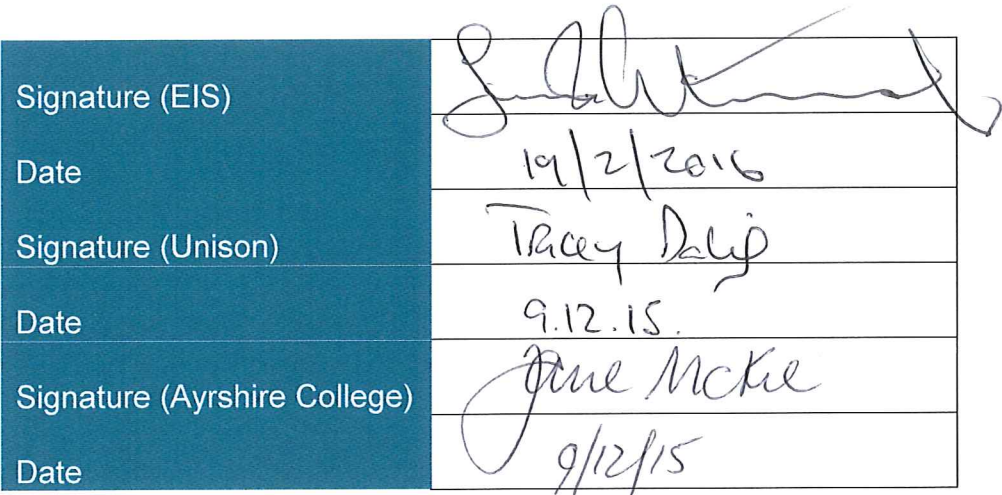 Signature (EIS)
Date 19/2/2016
Signature (Unison) Tracey
Date 9.12.15.
Signature (Ayrshire College) Jane McKie
Date 9/12/15